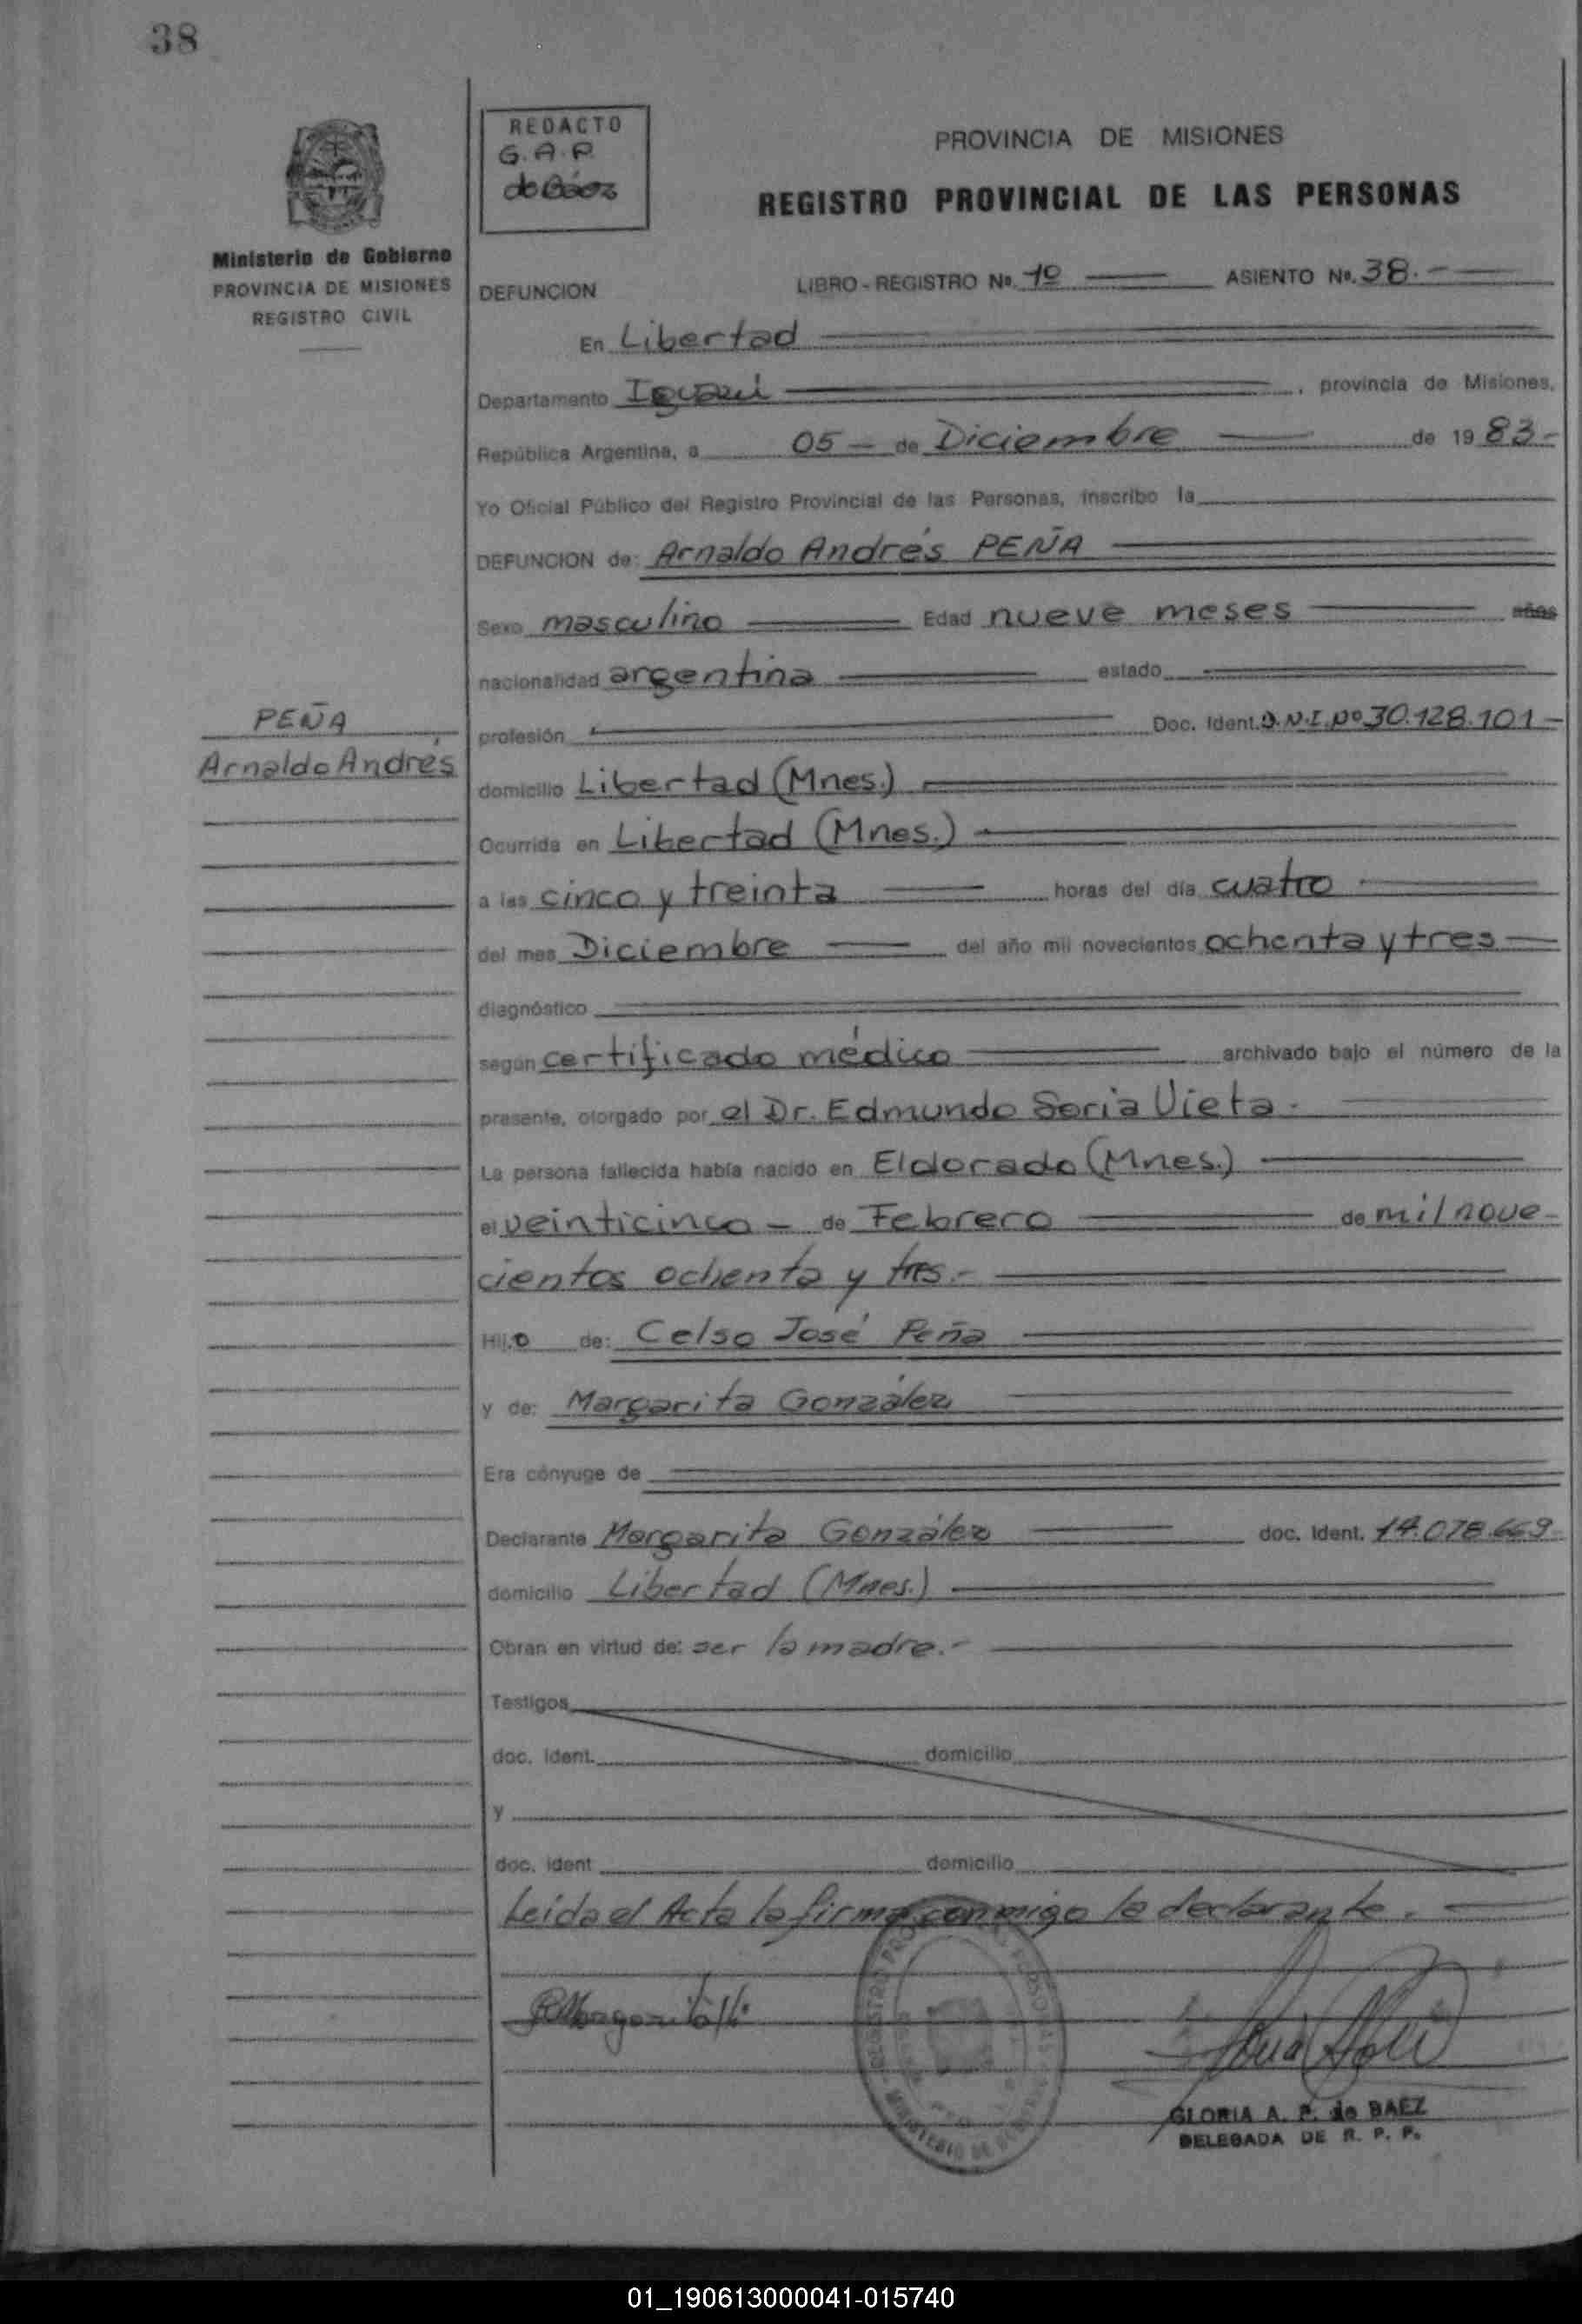 38
REDACTO
G. A. P.
de Báez
PROVINCIA DE MISIONES
REGISTRO PROVINCIAL DE LAS PERSONAS
Ministerio de Gobierno
PROVINCIA DE MISIONES
REGISTRO CIVIL
DEFUNCION LIBRO - REGISTRO No. 1º ASIENTO No. 38.-
En Libertad
Departamento Iguazú, provincia de Misiones,
República Argentina, a 05 - de Diciembre de 19 83-
Yo Oficial Público del Registro Provincial de las Personas, inscribo la
DEFUNCION de: Arnaldo Andrés PEÑA
Sexo masculino Edad nueve meses años
nacionalidad argentina estado
PEÑA
Arnaldo Andrés
profesión Doc. Ident. D.N.I. Nº 30.128.101-
domicilio Libertad (Mnes.)
Ocurrida en Libertad (Mnes.)
a las cinco y treinta horas del día cuatro
del mes Diciembre del año mil novecientos ochenta y tres
diagnóstico
según certificado médico archivado bajo el número de la
presente, otorgado por el Dr. Edmundo Soria Vieta.
La persona fallecida había nacido en Eldorado (Mnes.)
el veinticinco - de Febrero de mil nove-
cientos ochenta y tres.-
Hijo de: Celso José Peña
y de: Margarita González
Era cónyuge de
Declarante Margarita González doc. Ident. 14.078.669
domicilio Libertad (Mnes.)
Obran en virtud de: ser la madre.-
Testigos
doc. Ident. domicilio
y
doc. ident domicilio
Leida el Acta la firma conmigo la declarante.
GLORIA A. P. de BAEZ
DELEGADA DE R. P. P.
01_190613000041-015740